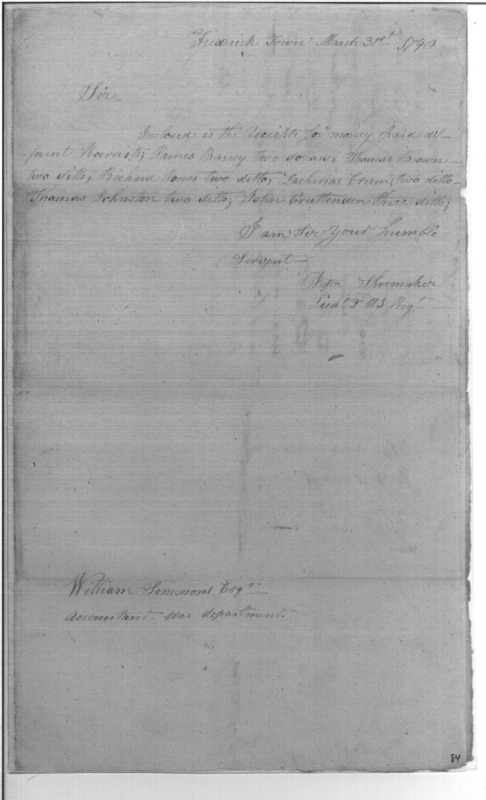 Frederick Town March 31st
Sir
Inclosed is the Receipts for money paid dif-
ferent Recruits, James Raney two dolars, Thomas Brown
two ditto, Richard Jones two ditto, Zacherias Crum, two ditto
Thomas Johnston two ditto, John Cruttenden three ditto;
I am Sir Your humble
Servent
Peter Shoemaker
Lieut 2d US Regt
William Simmons Esqr
Accountant war department.
84